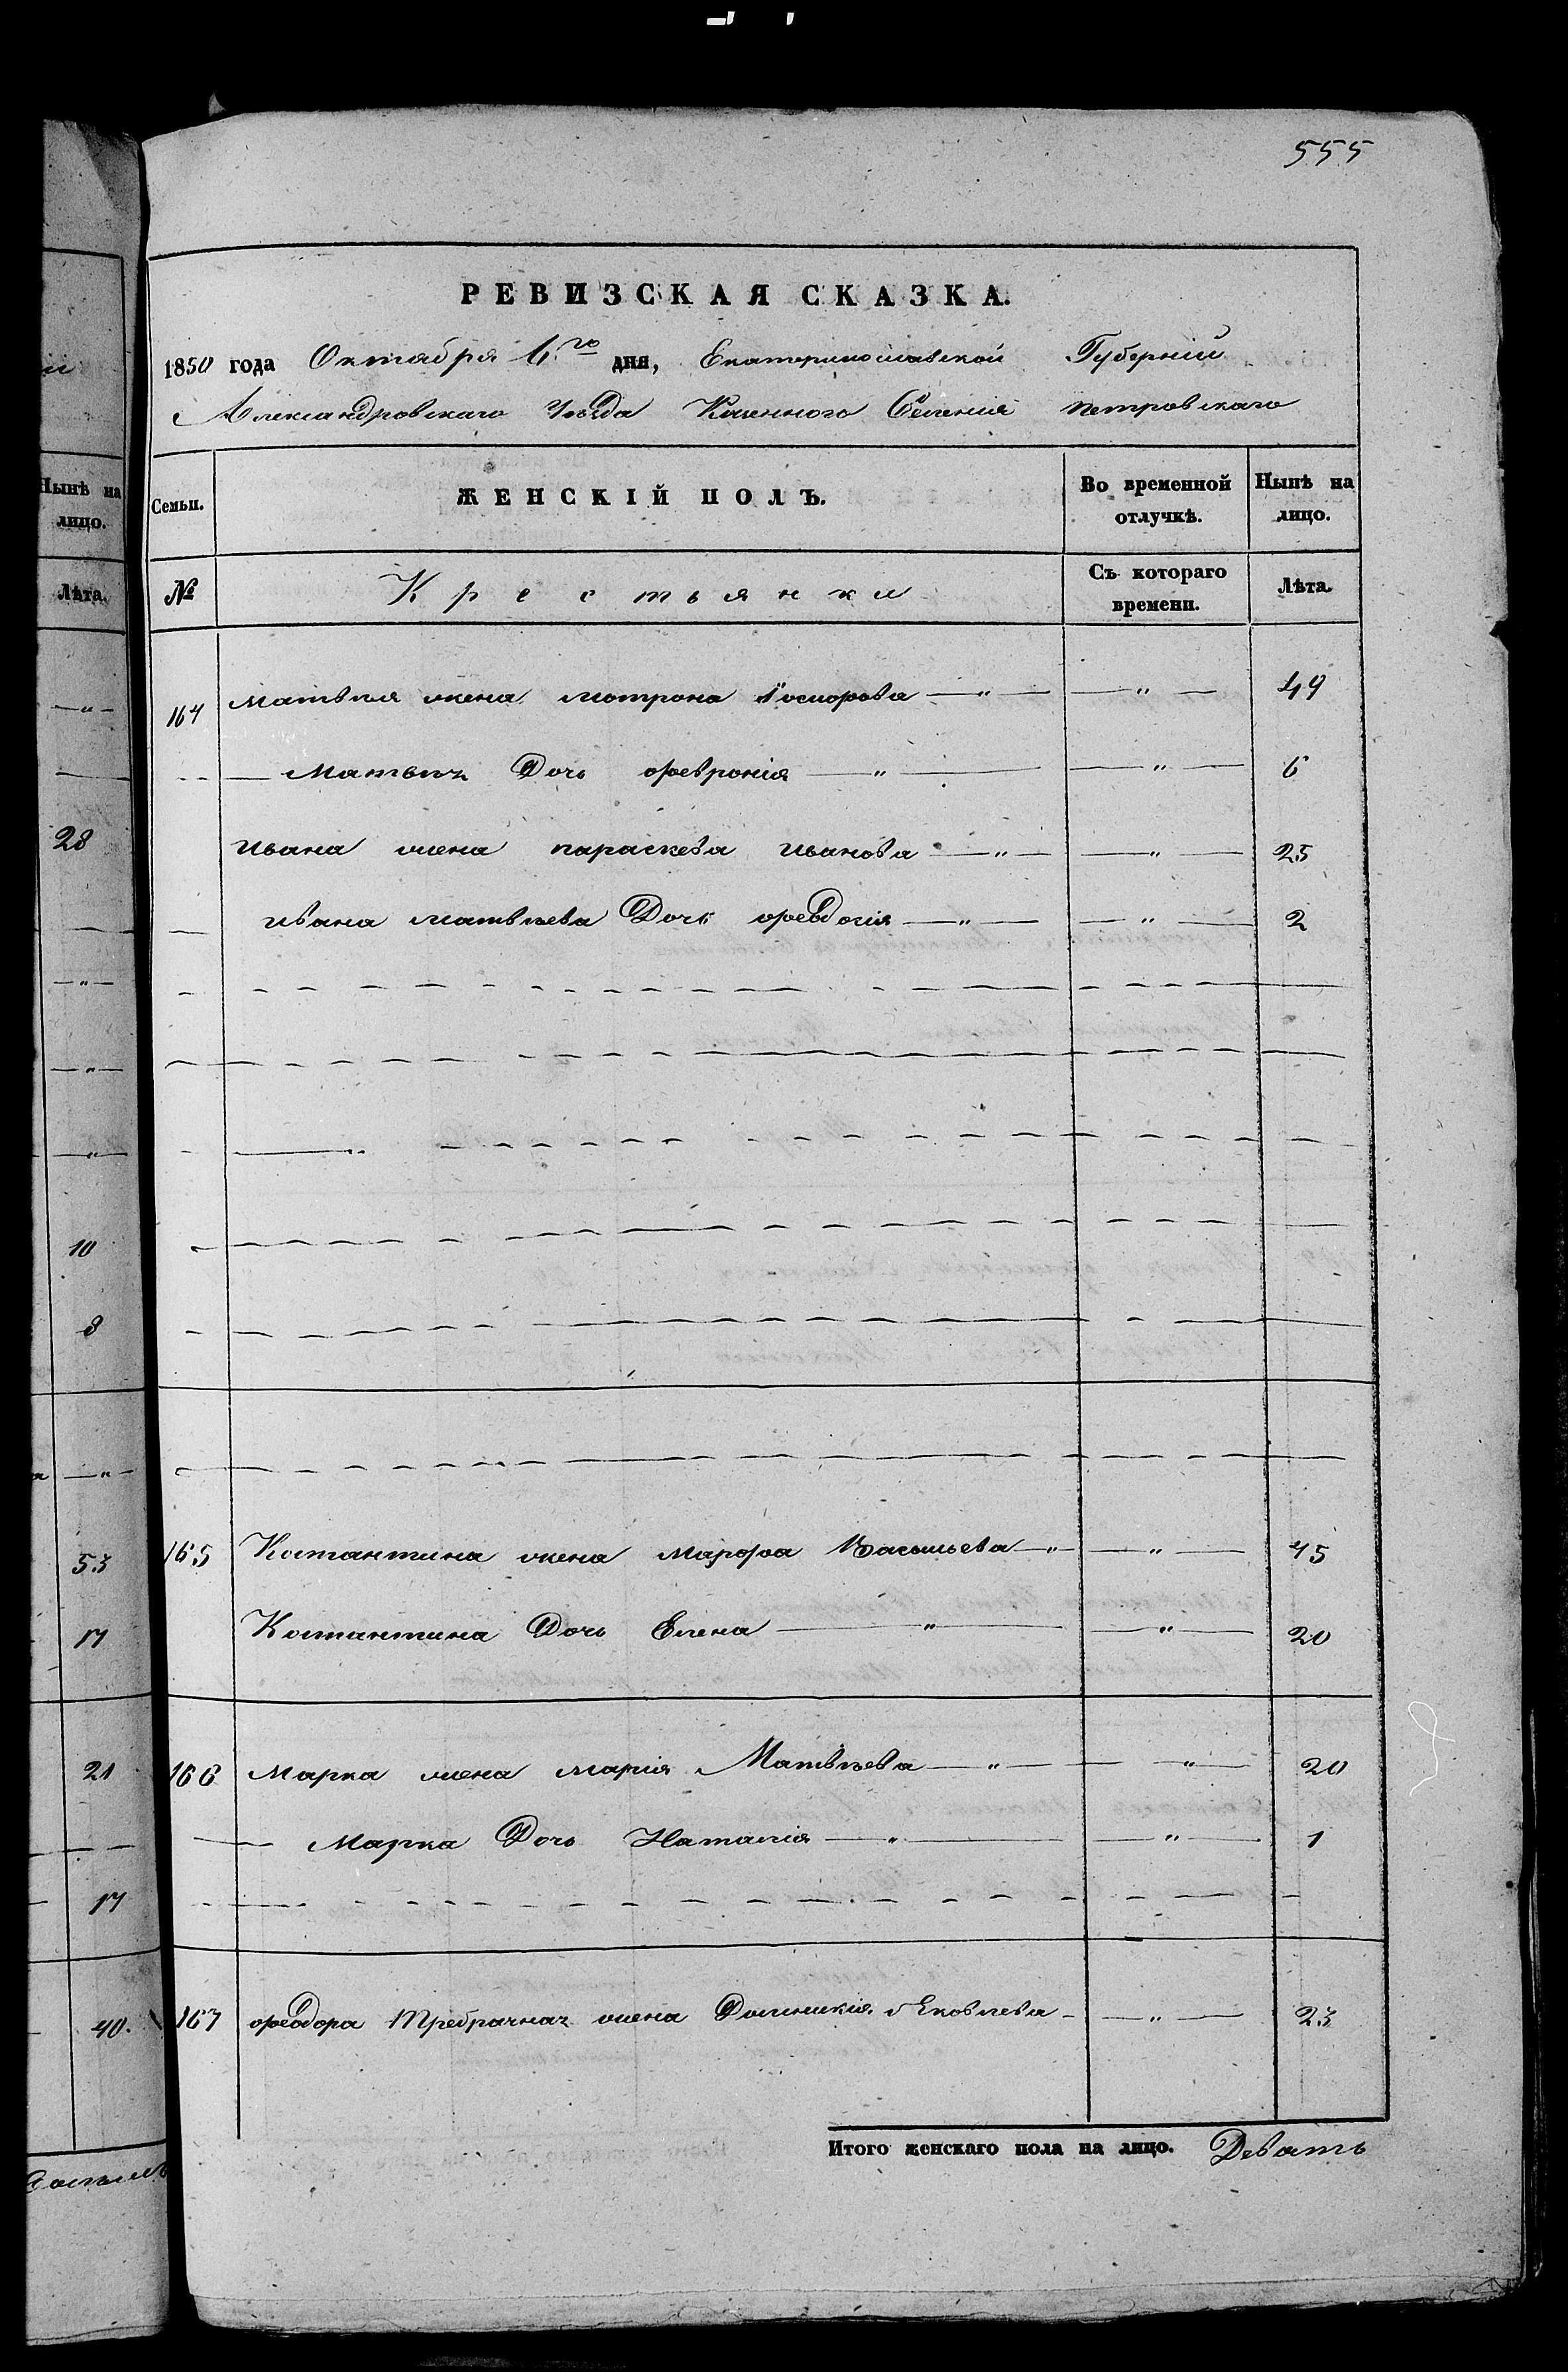 555
РЕВИЗСКАЯ СКАЗКА.
1850 года Октября 6го дня, Екатеринославской Губерніи
Александровскаго Уѣзда Казенного Селенія Петровскаго
Нынѣ на лицо.
Семьи.
ЖЕНСКІЙ ПОЛЪ.
Во временной отлучкѣ.
Нынѣ на лицо.
Лѣта.
№
Крестьянки
Съ котораго времени.
Лѣта.
164 Матвѣя жена Мотрона — " — — " — 49
Матвѣя Дочь Февронія — " — — " — 6
28
Ивана жена Параскева Иванова — " — — " — 25
Ивана Матвѣева Дочь Феодосія — " — — " — 2
10
8
53
165 Костантина жена Марфа Васильева — " — — " — 45
17
Костантина Дочь Елена — " — — " — 20
21
166 Марка жена Марія Матвѣева — " — — " — 20
Марка Дочь Наталія — " — — " — 1
17
40.
167 Феодора жена Яковлева — — " — 23
Итого женскаго пола на лицо. Девять